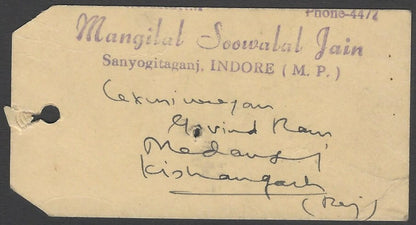 Phone-4472
Mangilal Soowalal Jain
Sanyogitaganj, INDORE ( M. P. )
Laxminarayan
Govind Ram
Madanganj
Kishangarh
(Raj)